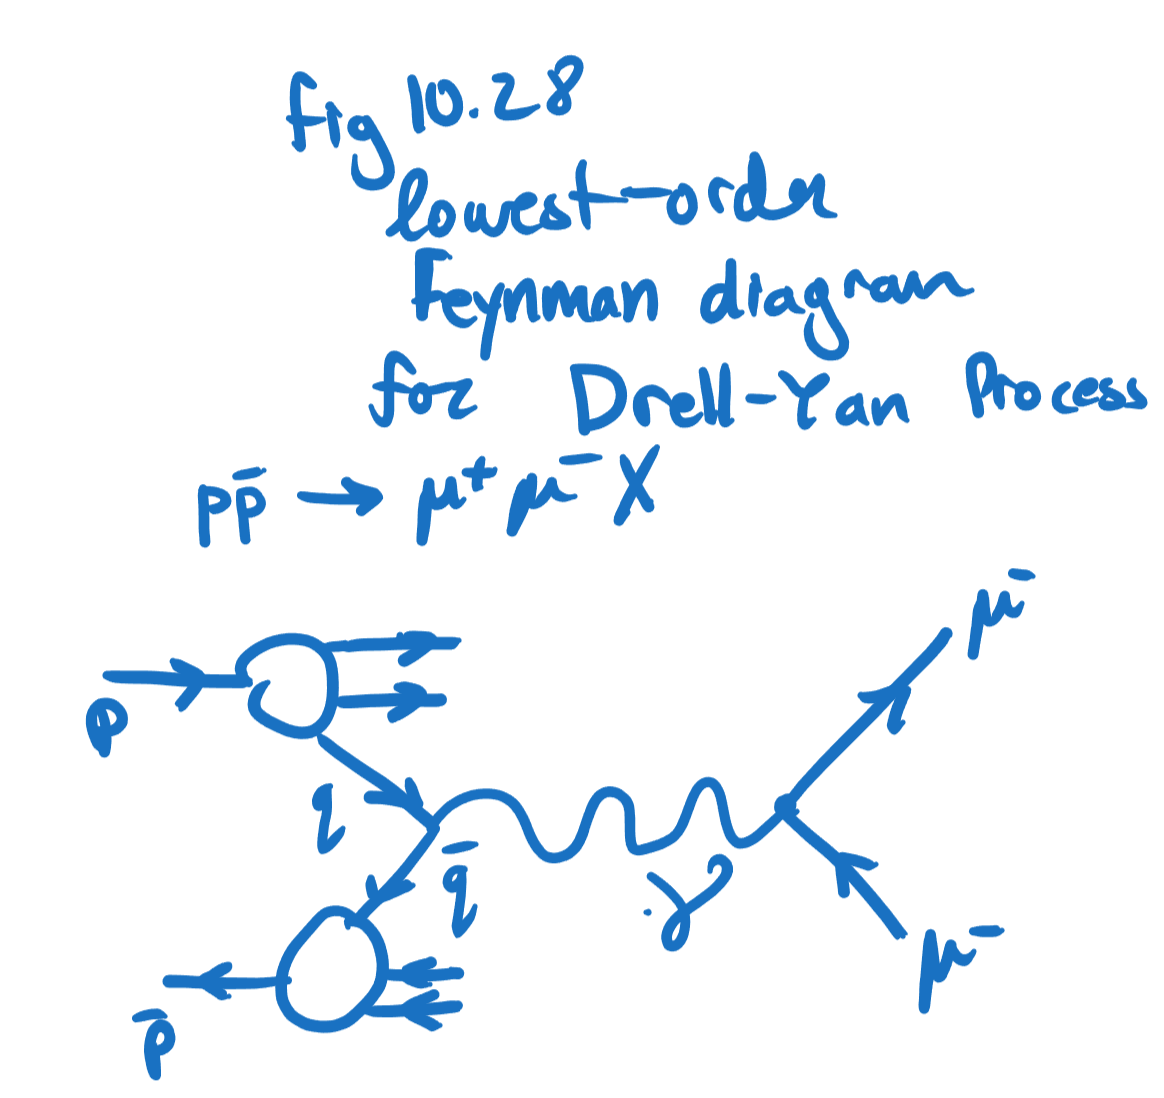 fig 10.28
lowest-order
Feynman diagram
for Drell-Yan Process
pp̄ → μ⁺ μ⁻ X
μ⁻
p
q
q̄
γ
μ⁻
p̄